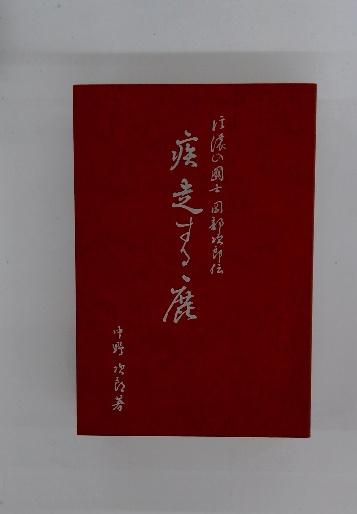 信濃の國士 岡部次郎伝
疾走する鹿
中野次郎著